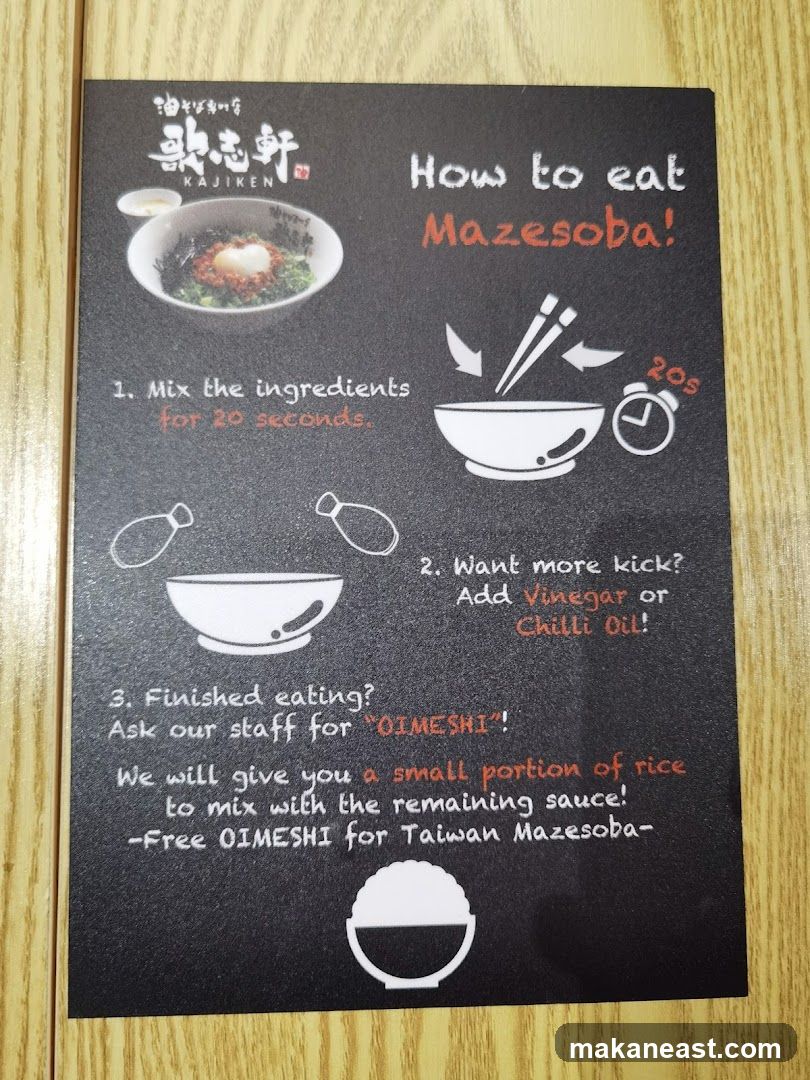 油そば専門店
歌志軒
KAJIKEN
How to eat
Mazesoba!
1. Mix the ingredients
for 20 seconds.
20s
2. Want more kick?
Add Vinegar or
Chilli Oil!
3. Finished eating?
Ask our staff for "OIMESHI"!
We will give you a small portion of rice
to mix with the remaining sauce!
-Free OIMESHI for Taiwan Mazesoba-
makaneast.com